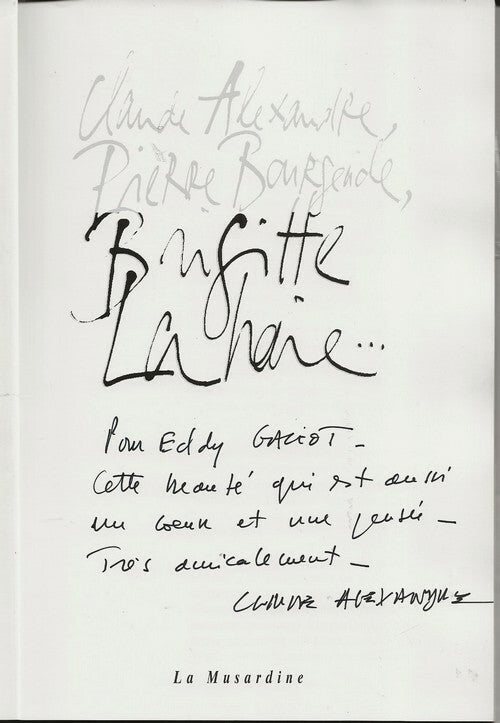 Claude Alexandre,
Pierre Bourgeade,
Brigitte
Lahaie...
Pour Eddy GALIOT -
Cette beauté qui est aussi
un coeur et une pensée -
Très amicalement -
CLAUDE ALEXANDRE
La Musardine